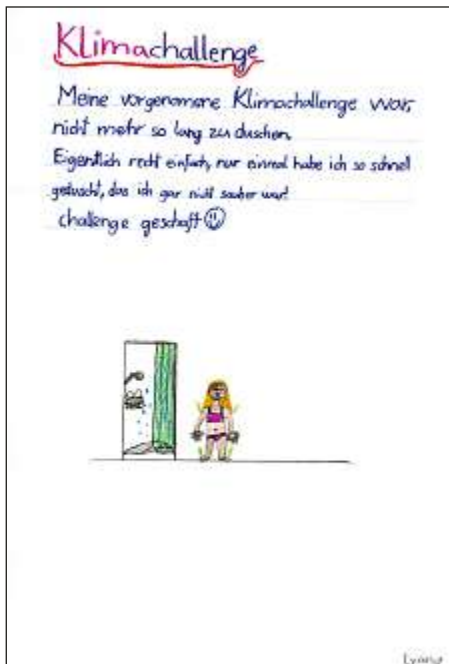 Klimachallenge
Meine vorgenomene Klimachallenge war,
nicht mehr so lang zu duschen.
Eigentlich recht einfach, nur einmal habe ich so schnell
geduscht, das ich gar nicht sauber war!
challenge geschaft